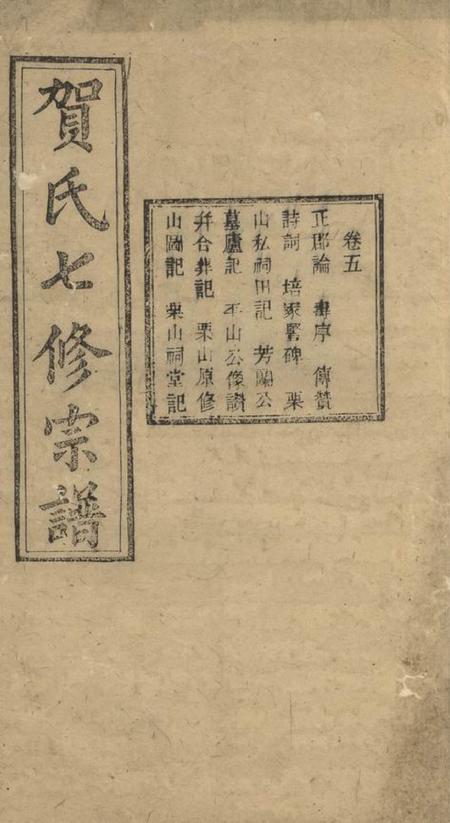 賀氏七修宗譜
卷五
正郡論 壽序 傳贊
詩詞 培冢誓碑 栗
山私祠田記 芳蘭公
墓廬記 平山公像讚
弁合葬記 栗山原修
山圖記 栗山祠堂記